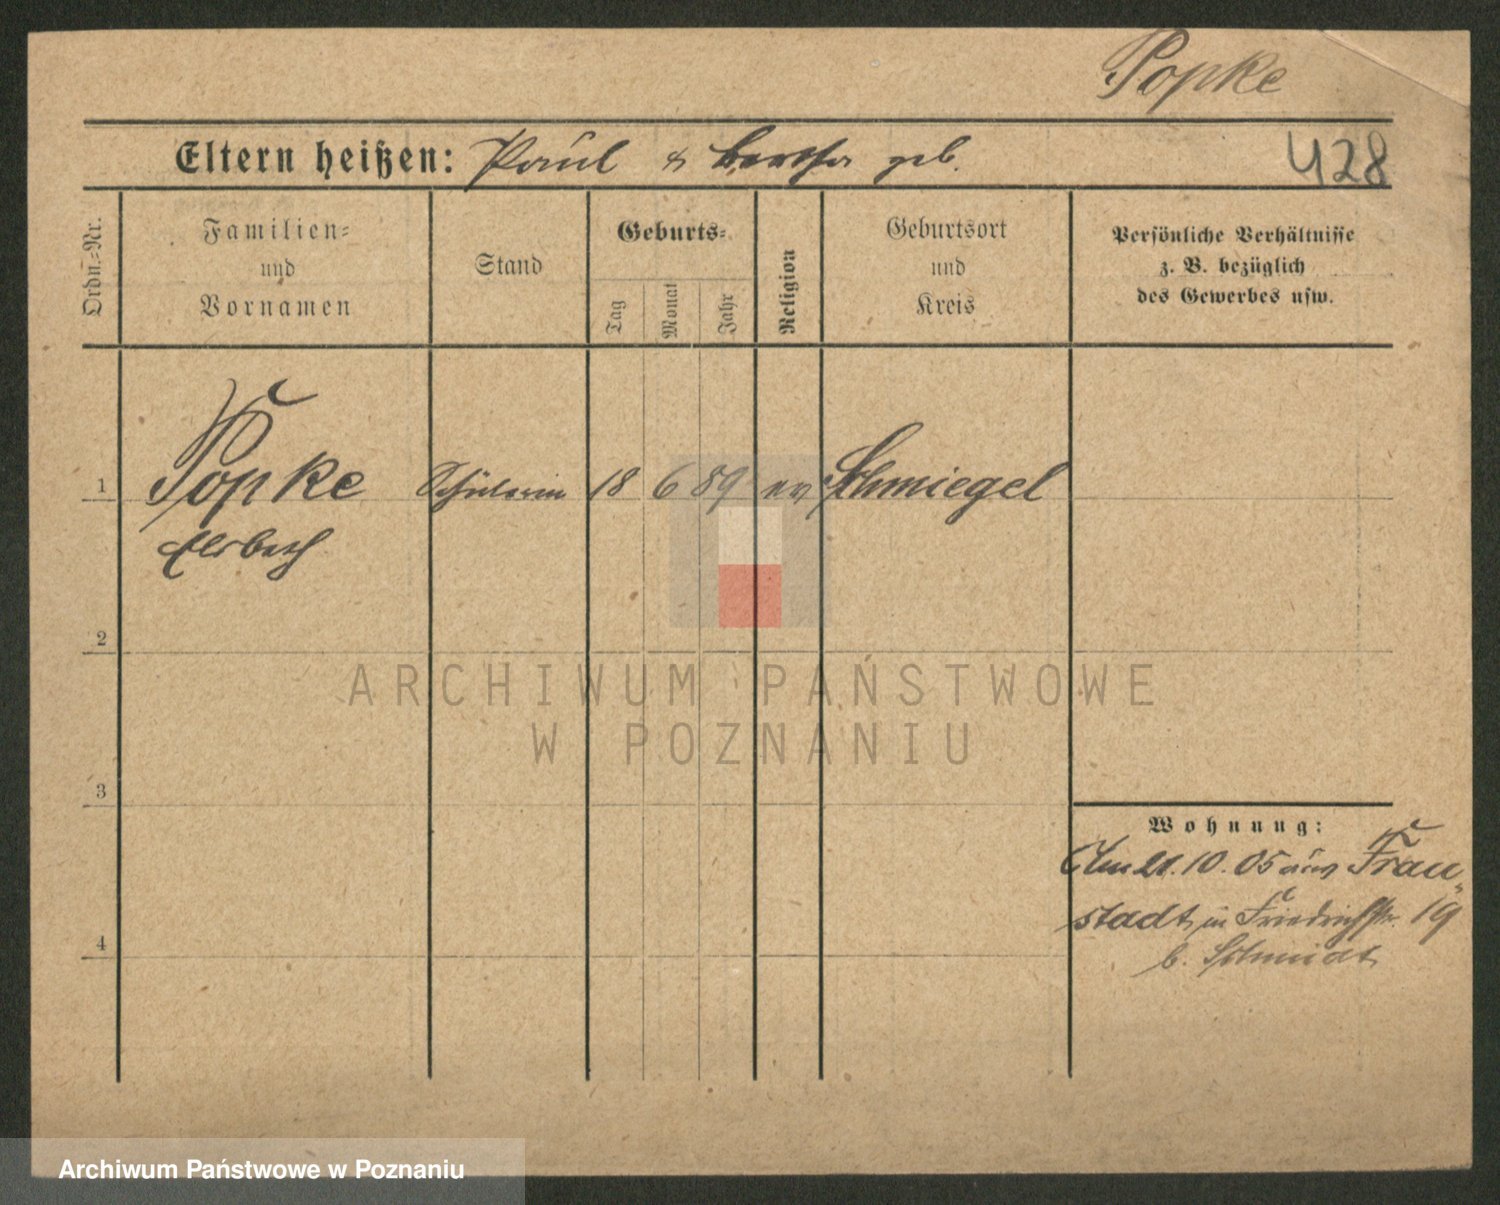 Popke
Eltern heißen: Paul & Bertha geb.
428
Ordn.-Nr.
Familien-
und
Vornamen
Stand
Geburts-
Tag
Monat
Jahr
Religion
Geburtsort
und
Kreis
Persönliche Verhältnisse
z. B. bezüglich
des Gewerbes usw.
1
Popke Schülerin 18 6 89 ev Schmiegel
Elsbeth
2
ARCHIWUM PAŃSTWOWE
W POZNANIU
3
Wohnung:
Am 21.10.05 aus Frau-
stadt in Friedrichstr. 19
4
b. Schmidt
Archiwum Państwowe w Poznaniu